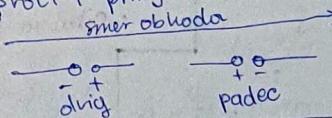 smer obhoda
- + + -
dvig padec